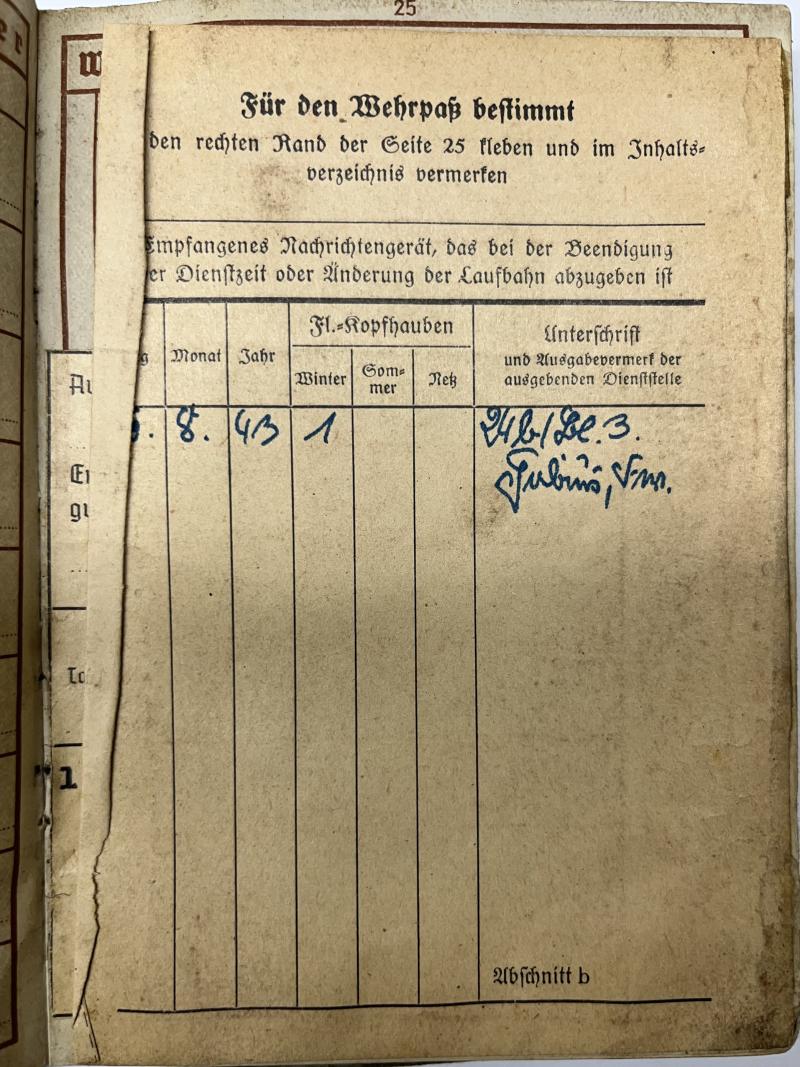 25
Für den Wehrpaß bestimmt
den rechten Rand der Seite 25 kleben und im Inhalts-
verzeichnis vermerken
Empfangenes Nachrichtengerät, das bei der Beendigung
er Dienstzeit oder Änderung der Laufbahn abzugeben ist
g Monat Jahr Fl.-Kopfhauben Unterschrift
und Ausgabevermerk der
ausgebenden Dienststelle
Winter Som-
mer Netz
8. 43 1 24b/Bl. 3.
Au
gu
1
Abschnitt b